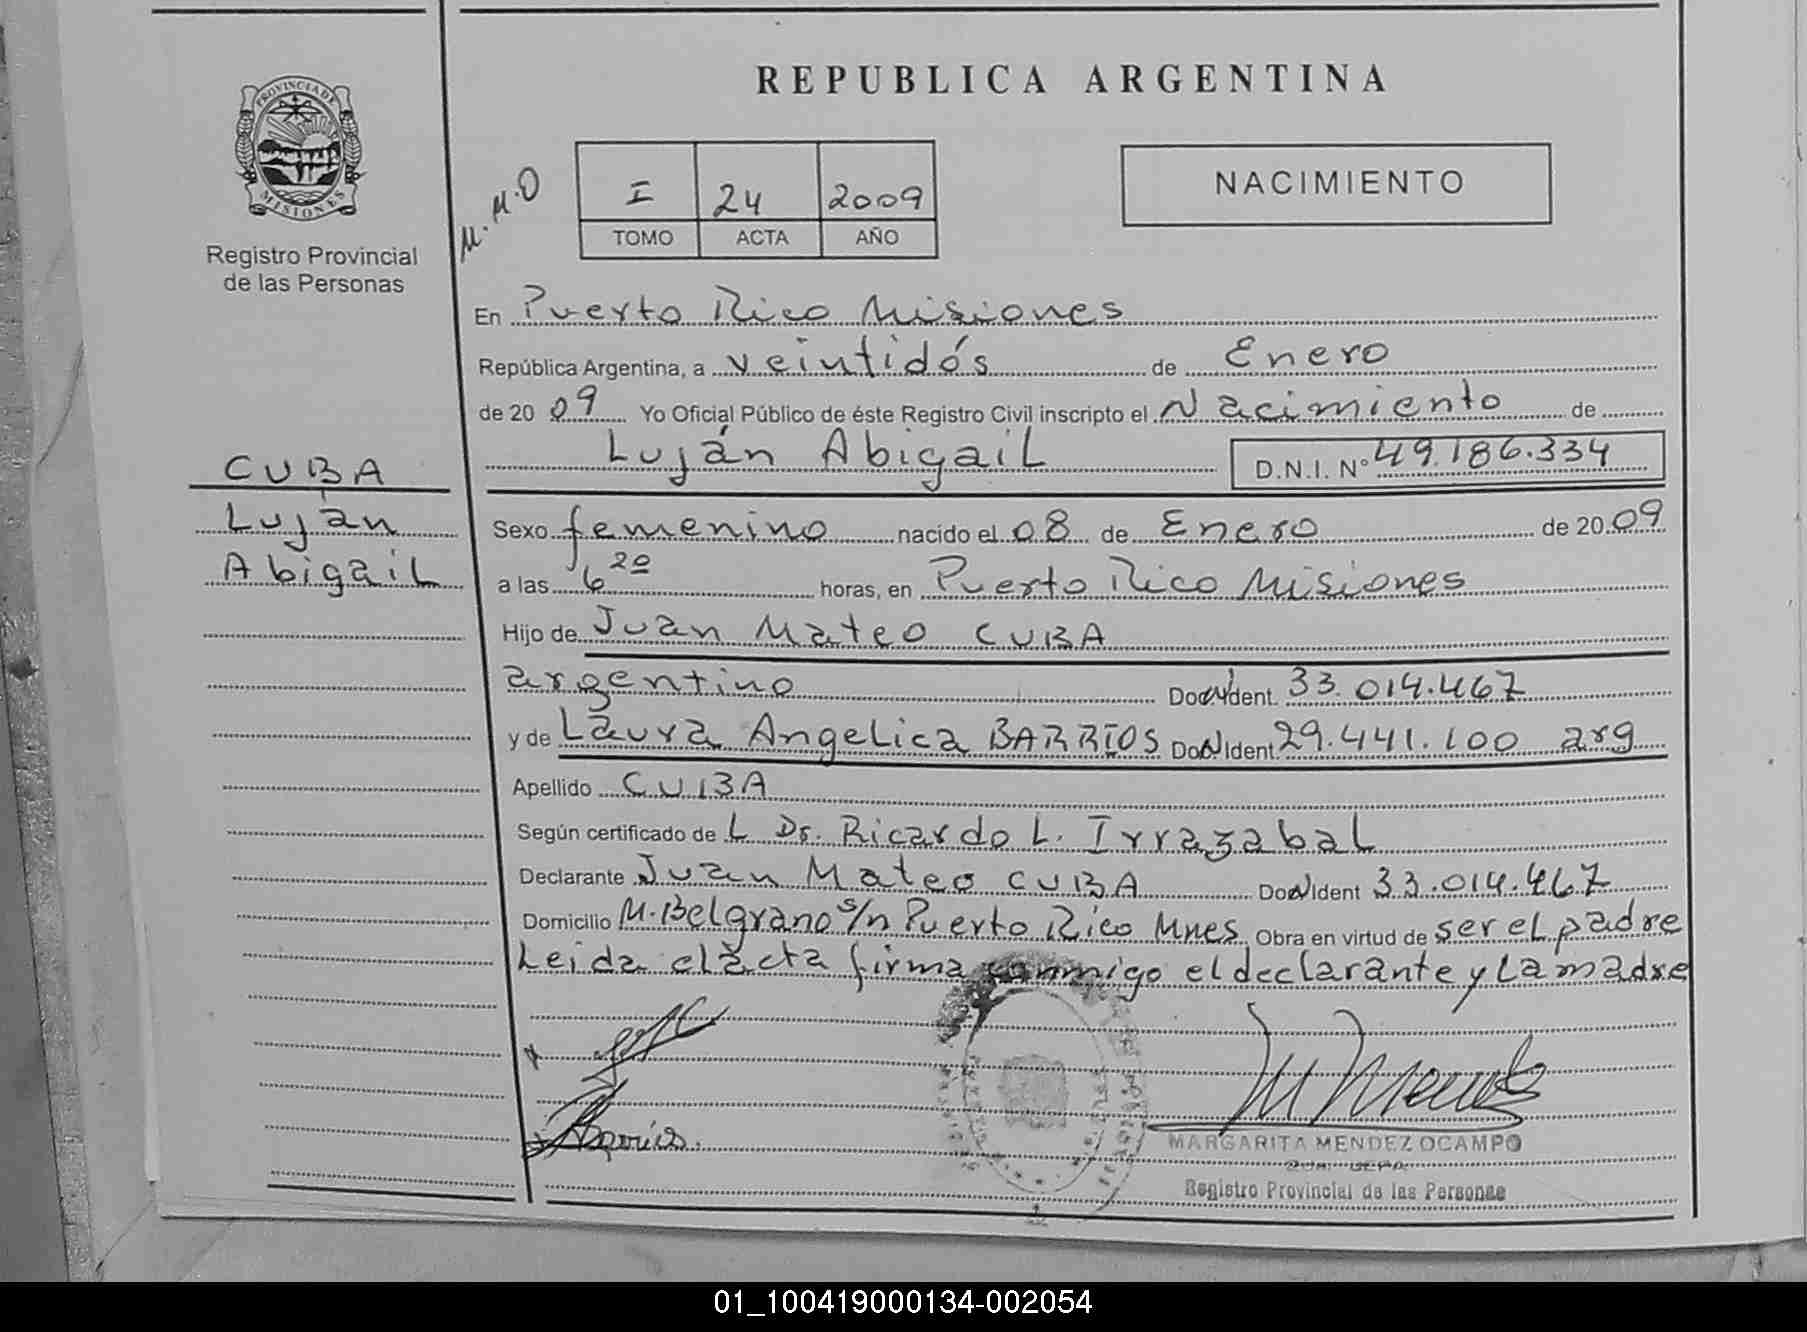 REPUBLICA ARGENTINA
PROVINCIA DE
MISIONES
Registro Provincial
de las Personas
M.M.O
I 24 2009
TOMO ACTA AÑO
NACIMIENTO
En Puerto Rico Misiones
República Argentina, a veintidós de Enero
de 20 09 Yo Oficial Público de éste Registro Civil inscripto el Nacimiento de
Luján Abigail D.N.I. Nº 49.186.334
CUBA
Luján
Abigail
Sexo femenino nacido el 08 de Enero de 20 09
a las 6 20 horas, en Puerto Rico Misiones
Hijo de Juan Mateo CUBA
argentino Doc. Ident. 33.014.467
y de Laura Angelica BARRIOS Doc. Ident. 29.441.100 arg
Apellido CUBA
Según certificado de L Dr. Ricardo L. Irrazabal
Declarante Juan Mateo CUBA Doc. Ident 33.014.467
Domicilio M. Belgrano s/n Puerto Rico Mnes Obra en virtud de ser el padre
Leida el acta firma conmigo el declarante y La madre
Barrios.
MARGARITA MENDEZ OCAMPO
Registro Provincial de las Personas
01_100419000134-002054